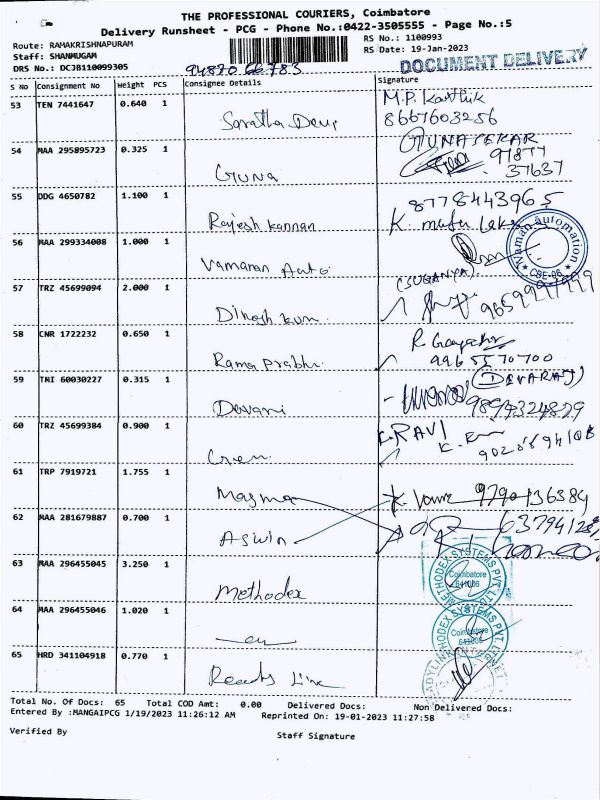 THE PROFESSIONAL COURIERS, Coimbatore
Delivery Runsheet - PCG - Phone No.:0422-3505555 - Page No.:5
Route: RAMAKRISHNAPURAM
RS No.: 1100993
Staff: SHANMUGAM
RS Date: 19-Jan-2023
DRS No.: DCJB110099305
94870 66783
DOCUMENT DELIVERY
S No Consignment No Weight PCS Consignee Details Signature
53 TEN 7441647 0.640 1
M.P. Karthik
8667603256
54 MAA 295895723 0.325 1
GUNASEKAR
Guna
97877
37637
55 DDG 4650782 1.100 1
8778443965
Rajesh Kannan
56 MAA 299334008 1.000 1
Vamanan Auto
Vaman automation
CBE-06
57 TRZ 45699094 2.000 1
(SUGANYA).
Dinesh kum
58 CNR 1722232 0.650 1
Rama Prabhu
9965570700
59 TMI 60030227 0.315 1
(DEVARAJ)
60 TRZ 45699384 0.900 1
K.RAVI
61 TRP 7919721 1.755 1
Magma
9790136384
62 MAA 281679887 0.700 1
Aswin
63 MAA 296455045 3.250 1
Methodex
METHODEX SYSTEMS PVT LTD
Coimbatore
641006
64 MAA 296455046 1.020 1
METHODEX SYSTEMS PVT LTD
Coimbatore
65 HRD 341104918 0.770 1
Ready Link
Total No. Of Docs: 65 Total COD Amt: 0.00 Delivered Docs: Non Delivered Docs:
Entered By :MANGAIPCG 1/19/2023 11:26:12 AM Reprinted On: 19-01-2023 11:27:58
Verified By
Staff Signature